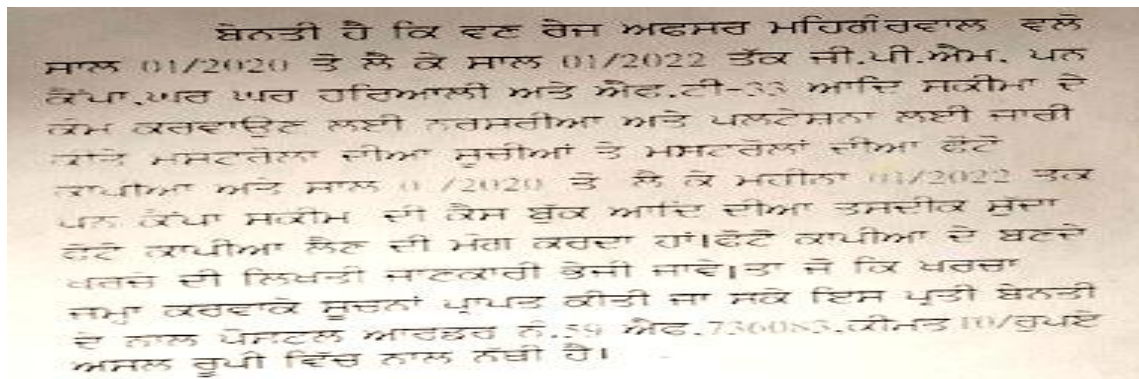 ਬੇਨਤੀ ਹੈ ਕਿ ਵਣ ਰੇਜ ਅਫਸਰ ਮਹਿਗੰਰਵਾਲ ਵਲੋ
ਸਾਲ 01/2020 ਤੋ ਲੈ ਕੇ ਸਾਲ 01/2022 ਤੱਕ ਜੀ.ਪੀ.ਐਮ. ਪਨ
ਕੈਂਪਾ.ਘਰ ਘਰ ਹਰਿਆਲੀ ਅਤੇ ਐਫ.ਟੀ-33 ਆਦਿ ਸਕੀਮਾ ਦੇ
ਕੰਮ ਕਰਵਾਉਣ ਲਈ ਨਰਸਰੀਆ ਅਤੇ ਪਲਟੇਸ਼ਨਾ ਲਈ ਜਾਰੀ
ਕੀਤੇ ਮਸਟਰੋਲਾ ਦੀਆ ਸੂਚੀਆਂ ਤੇ ਮਸਟਰੋਲਾਂ ਦੀਆ ਫੋਟੋ
ਕਾਪੀਆ ਅਤੇ ਸਾਲ /2020 ਤੋ ਲੈ ਕੇ ਮਹੀਨਾ 01/2022 ਤਕ
ਪਨ ਕੈਂਪਾ ਸਕੀਮ ਦੀ ਕੈਸ ਬੁੱਕ ਆਦਿ ਦੀਆ ਤਸਦੀਕ ਸ਼ੁੱਦਾ
ਫੋਟੋ ਕਾਪੀਆ ਲੈਣ ਦੀ ਮੰਗ ਕਰਦਾ ਹਾਂ।ਫੋਟੋ ਕਾਪੀਆ ਦੇ ਬਣਦੇ
ਖਰਚੇ ਦੀ ਲਿਖਤੀ ਜਾਣਕਾਰੀ ਭੇਜੀ ਜਾਵੇ।ਤਾ ਜੋ ਕਿ ਖਰਚਾ
ਜਮ੍ਹਾ ਕਰਵਾਕੇ ਸੂਚਨਾਂ ਪ੍ਰਾਪਤ ਕੀਤੀ ਜਾ ਸਕੇ ਇਸ ਪ੍ਰਤੀ ਬੇਨਤੀ
ਦੇ ਨਾਲ ਪੋਸਟਲ ਆਰਡਰ ਨੰ.59 ਐਫ.736083.ਕੀਮਤ 10/ਰੁਪਏ
ਅਸਲ ਰੂਪੀ ਵਿੱਚ ਨਾਲ ਨੱਥੀ ਹੈ।